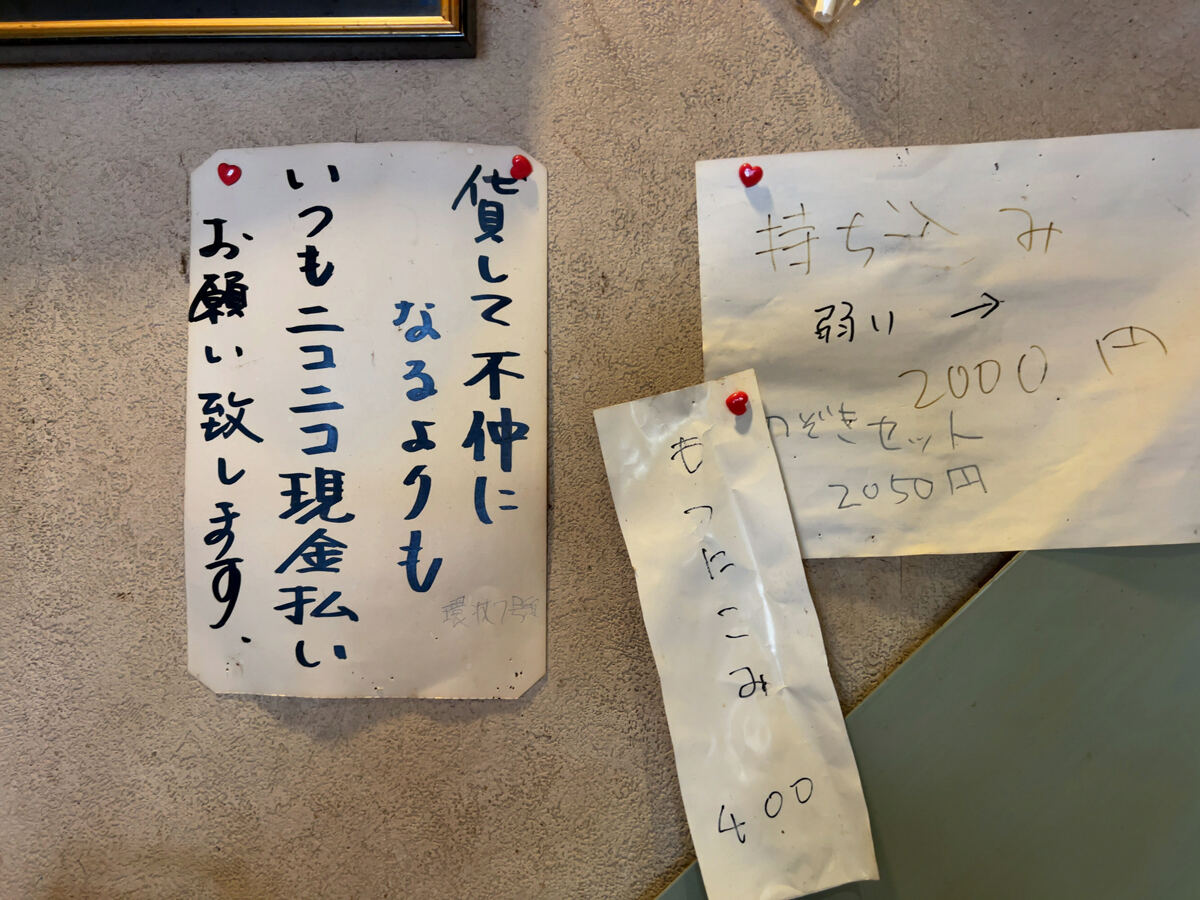 貸して不仲に
なるよりも
いつもニコニコ現金払い
お願い致します、
持ち込み
弱い →
2000円
のぞきセット
2050円
もつにこみ
400